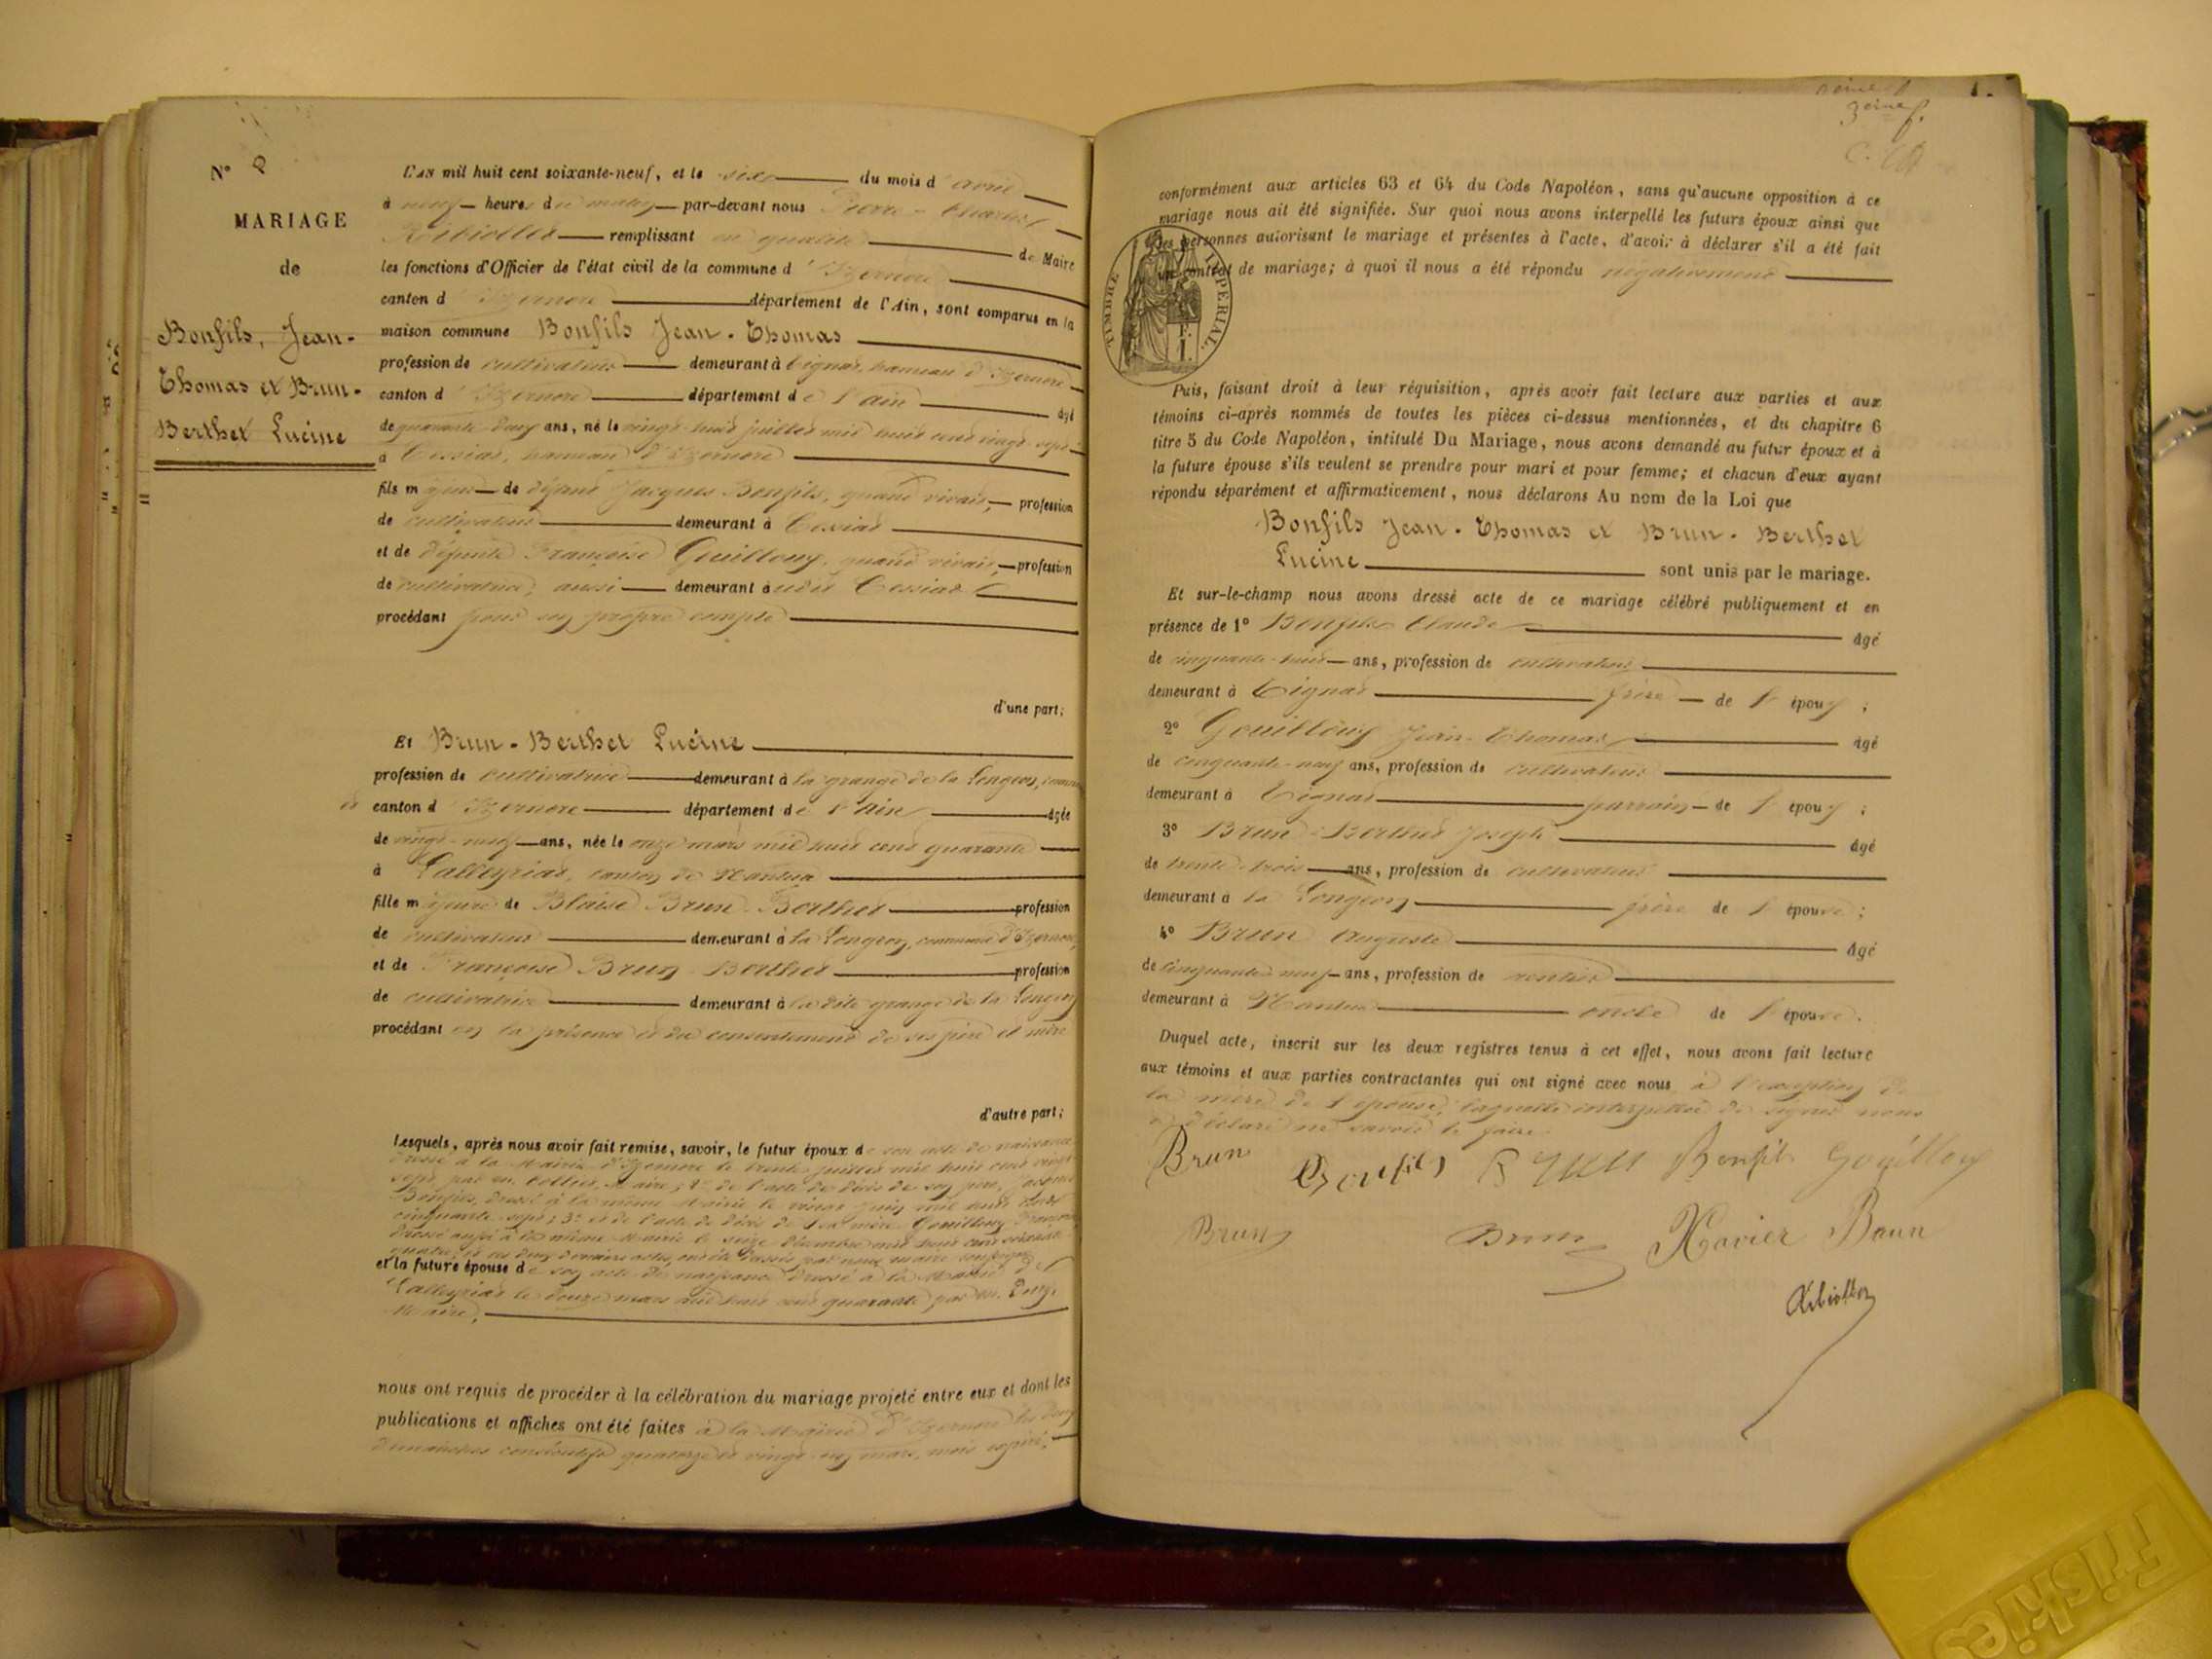 N° 2
MARIAGE
de
Bonfils, Jean-
Thomas et Brun-
Berthet Lucine
L'AN mil huit cent soixante-neuf, et le six du mois d'avril
à neuf heures du matin par-devant nous Pierre-Charles
Rebiollon remplissant en qualité de Maire
les fonctions d'Officier de l'état civil de la commune d'Izernore
canton d'Izernore département de l'Ain, sont comparus en la
maison commune Bonfils Jean-Thomas
profession de cultivateur demeurant à Tignat, hameau d'Izernore
canton d'Izernore département de l'ain âgé
de quarante deux ans, né le vingt-huit juillet mil huit cent vingt-sept
à Cessiat, hameau d'Izernore
fils majeur de défunt Jacques Bonfils, quand vivait, profession
de cultivateur demeurant à Cessiat
et de défunte Françoise Gouilloux, quand vivait, profession
de cultivatrice, aussi demeurant à udit Cessiat
procédant pour son propre compte
d'une part;
Et Brun-Berthet Lucine
profession de cultivatrice demeurant à la grange de la Longeon,
canton d'Izernore département de l'Ain âgée
de vingt-neuf ans, née le onze mars mil huit cent quarante
à Lalleyriat, canton de Nantua
fille majeure de Blaise Brun-Berthet profession
de cultivateur demeurant à la Longeon, commune d'Izernore
et de Françoise Brun-Berthet profession
de cultivatrice demeurant à la dite grange de la Longeon
procédant en la présence et du consentement de ses père et mère
d'autre part;
Lesquels, après nous avoir fait remise, savoir, le futur époux de son acte de naissance
dressé à la Mairie d'Izernore le trente juillet mil huit cent vingt
sept par m. Maire; 2° de l'acte de décès de son père, Jacques
Bonfils, dressé à la même Mairie le vingt juin mil huit cent
cinquante-sept; 3° et de l'acte de décès de sa mère Gouilloux Françoise
dressé aussi à la même Mairie le seize décembre mil huit cent soixante
quatre, et ces deux derniers actes ont été dressés par nous maire soussigné
et la future épouse de son acte de naissance dressé à la Mairie de
Lalleyriat le douze mars mil huit cent quarante par m.
Maire;
nous ont requis de procéder à la célébration du mariage projeté entre eux et dont les
publications et affiches ont été faites à la Mairie d'Izernore les deux
dimanches consécutifs quatorze et vingt-un mars, mois expiré,
3eme f.
conformément aux articles 63 et 64 du Code Napoléon, sans qu'aucune opposition à ce
mariage nous ait été signifiée. Sur quoi nous avons interpellé les futurs époux ainsi que
les personnes autorisant le mariage et présentes à l'acte, d'avoir à déclarer s'il a été fait
un contrat de mariage; à quoi il nous a été répondu négativement
TIMBRE IMPERIAL.
Puis, faisant droit à leur réquisition, après avoir fait lecture aux parties et aux
témoins ci-après nommés de toutes les pièces ci-dessus mentionnées, et du chapitre 6
titre 5 du Code Napoléon, intitulé Du Mariage, nous avons demandé au futur époux et à
la future épouse s'ils veulent se prendre pour mari et pour femme; et chacun d'eux ayant
répondu séparément et affirmativement, nous déclarons Au nom de la Loi que
Bonfils Jean-Thomas et Brun-Berthet
Lucine sont unis par le mariage.
Et sur-le-champ nous avons dressé acte de ce mariage célébré publiquement et en
présence de 1° Bonfils Claude âgé
de cinquante-huit ans, profession de cultivateur
demeurant à Tignat frère de l'époux;
2° Gouilloux Jean-Thomas âgé
de cinquante-neuf ans, profession de cultivateur
demeurant à Tignat parrain de l'époux;
3° Brun-Berthet Joseph âgé
de trente-trois ans, profession de cultivateur
demeurant à la Longeon frère de l'épouse;
4° Brun Auguste âgé
de cinquante neuf ans, profession de rentier
demeurant à Nantua oncle de l'épouse.
Duquel acte, inscrit sur les deux registres tenus à cet effet, nous avons fait lecture
aux témoins et aux parties contractantes qui ont signé avec nous, à l'exception de
la mère de l'épouse, laquelle interpellée de signer nous
a déclaré ne savoir le faire.
Brun Bonfils Brun Bonfils Gouilloux
Brun Brun Xavier Brun
Friskies